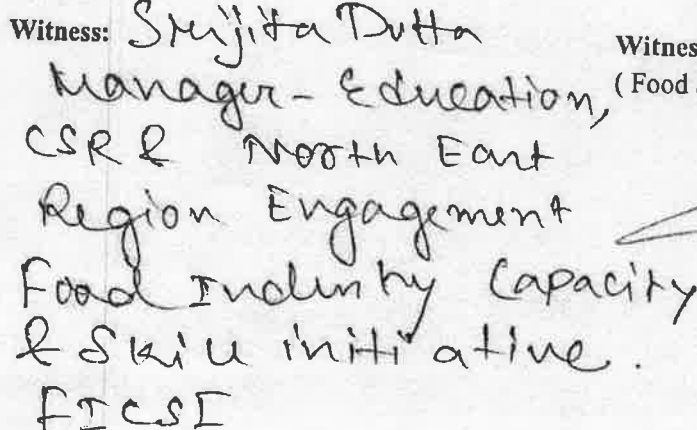 Witness: Srijita Dutta
Manager - Education,
CSR & North East
Region Engagement
Food Industry Capacity
& Skill initiative.
FICSI
Witnes
( Food